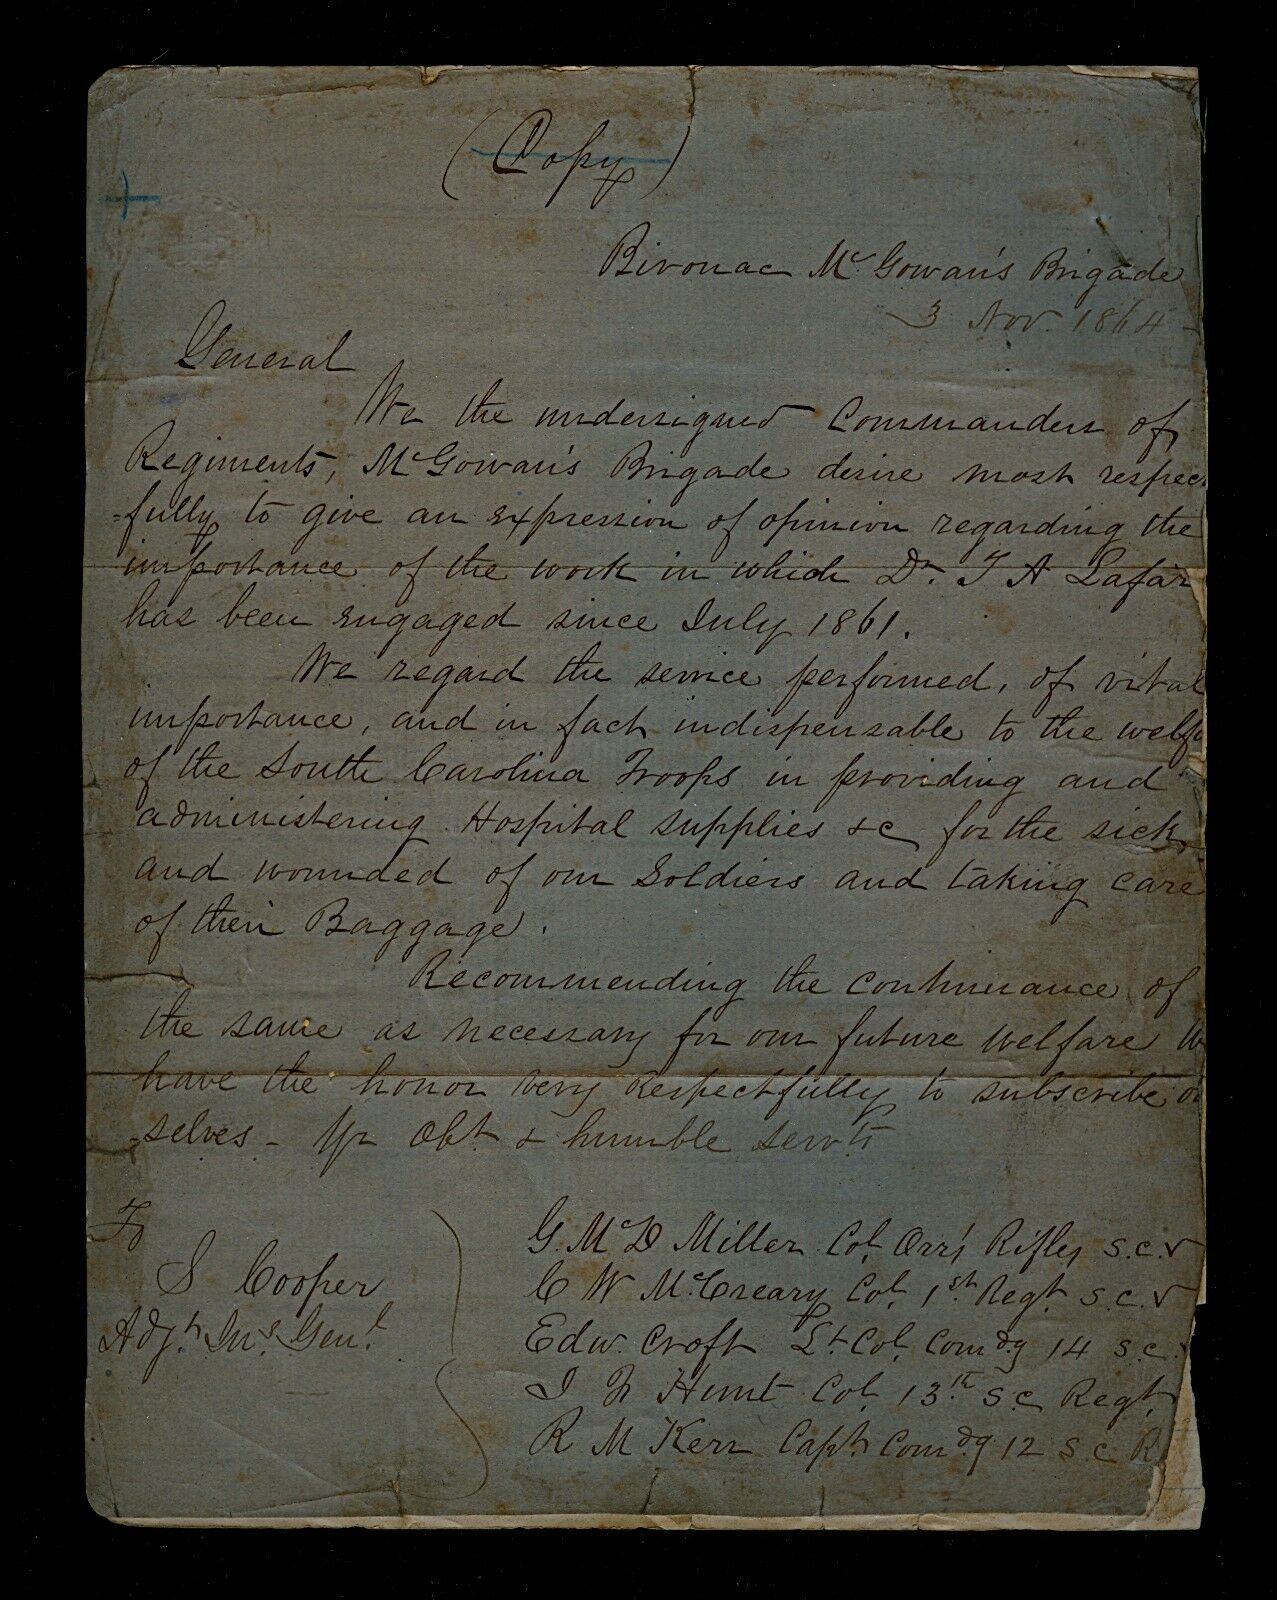 (Copy)
Bivouac McGowan's Brigade
3 Nov. 1864 -
General
We the undersigned Commanders of
Regiments, McGowan's Brigade desire most respect
=fully to give an expression of opinion regarding the
importance of the work in which Dr. T A Lafar
has been engaged since July 1861.
We regard the service performed, of vital
importance, and in fact indispensable to the welfa
of the South Carolina Troops in providing and
administering Hospital supplies &c for the sick
and wounded of our Soldiers and taking care
of their Baggage.
Recommending the continuance of
the same as necessary for our future welfare W
have the honor very Respectfully to subscribe ou
=selves - Yr Obt & humble servts
To
S Cooper
Adjt. Ins. Genl.
G. McD Miller Col. Orr's Rifles S.C.V
C W McCreary Col. 1st. Regt. S.C.V
Edw. Croft Lt. Col. Comdg 14 S.C.
I F Hunt Col. 13th S.C. Regt.
R M Kerr Capt. Comdg 12 S C R